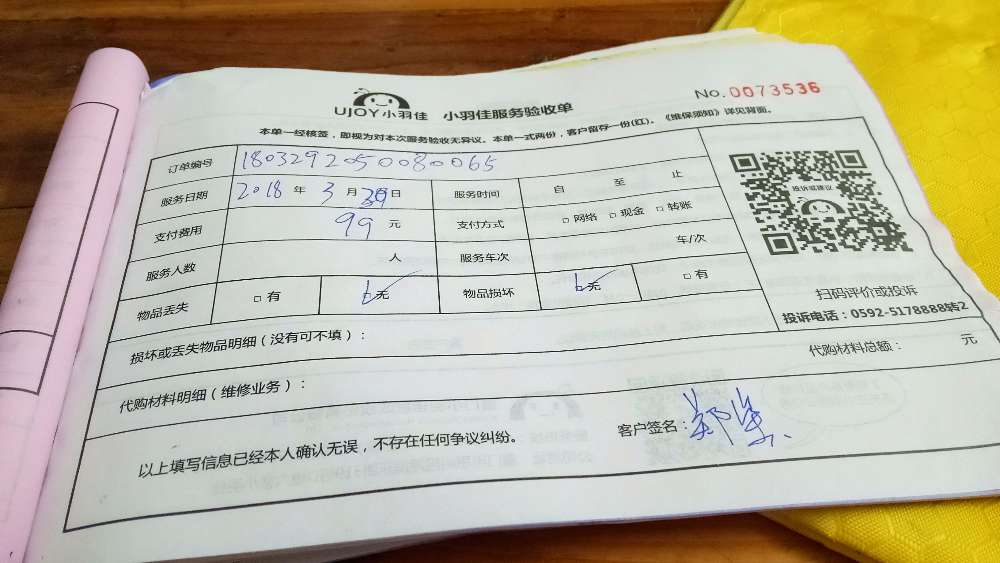 No.0073536
UJOY小羽佳 小羽佳服务验收单
本单一经核签，即视为对本次服务验收无异议。本单一式两份，客户留存一份(红)。《维保须知》详见背面。
订单编号 180329205008 0065
服务日期 2018 年 3 月 30 日 服务时间 自 至 止
支付费用 99 元 支付方式 □ 网络 □ 现金 □ 转账
服务人数 人 服务车次 车/次
物品丢失 □ 有 □ 无 物品损坏 □ 无 □ 有
投诉或建议
扫码评价或投诉
投诉电话：0592-5178888转2
损坏或丢失物品明细（没有可不填）：
代购材料明细（维修业务）： 代购材料总额： 元
以上填写信息已经本人确认无误，不存在任何争议纠纷。 客户签名：